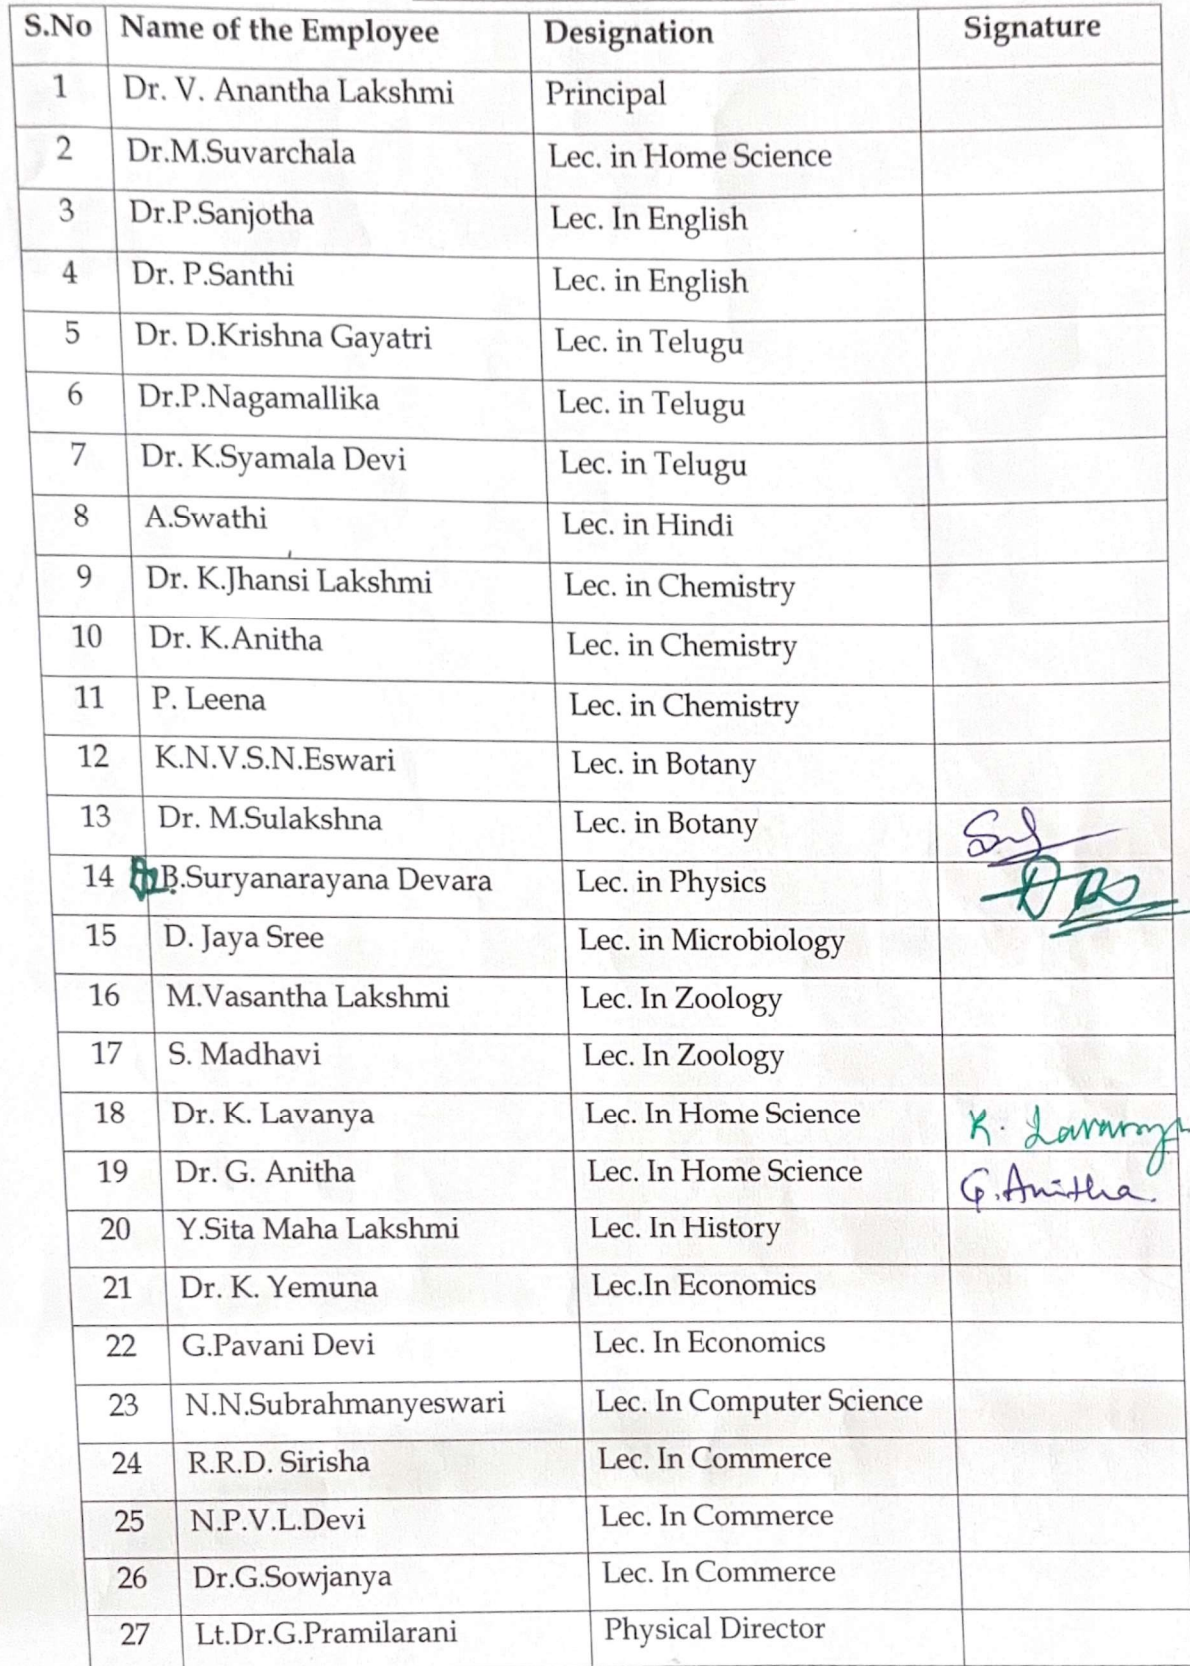 S.No Name of the Employee Designation Signature
1 Dr. V. Anantha Lakshmi Principal
2 Dr.M.Suvarchala Lec. in Home Science
3 Dr.P.Sanjotha Lec. In English
4 Dr. P.Santhi Lec. in English
5 Dr. D.Krishna Gayatri Lec. in Telugu
6 Dr.P.Nagamallika Lec. in Telugu
7 Dr. K.Syamala Devi Lec. in Telugu
8 A.Swathi Lec. in Hindi
9 Dr. K.Jhansi Lakshmi Lec. in Chemistry
10 Dr. K.Anitha Lec. in Chemistry
11 P. Leena Lec. in Chemistry
12 K.N.V.S.N.Eswari Lec. in Botany
13 Dr. M.Sulakshna Lec. in Botany
14 B.Suryanarayana Devara Lec. in Physics
15 D. Jaya Sree Lec. in Microbiology
16 M.Vasantha Lakshmi Lec. In Zoology
17 S. Madhavi Lec. In Zoology
18 Dr. K. Lavanya Lec. In Home Science K. Lavanya
19 Dr. G. Anitha Lec. In Home Science G. Anitha.
20 Y.Sita Maha Lakshmi Lec. In History
21 Dr. K. Yemuna Lec.In Economics
22 G.Pavani Devi Lec. In Economics
23 N.N.Subrahmanyeswari Lec. In Computer Science
24 R.R.D. Sirisha Lec. In Commerce
25 N.P.V.L.Devi Lec. In Commerce
26 Dr.G.Sowjanya Lec. In Commerce
27 Lt.Dr.G.Pramilarani Physical Director